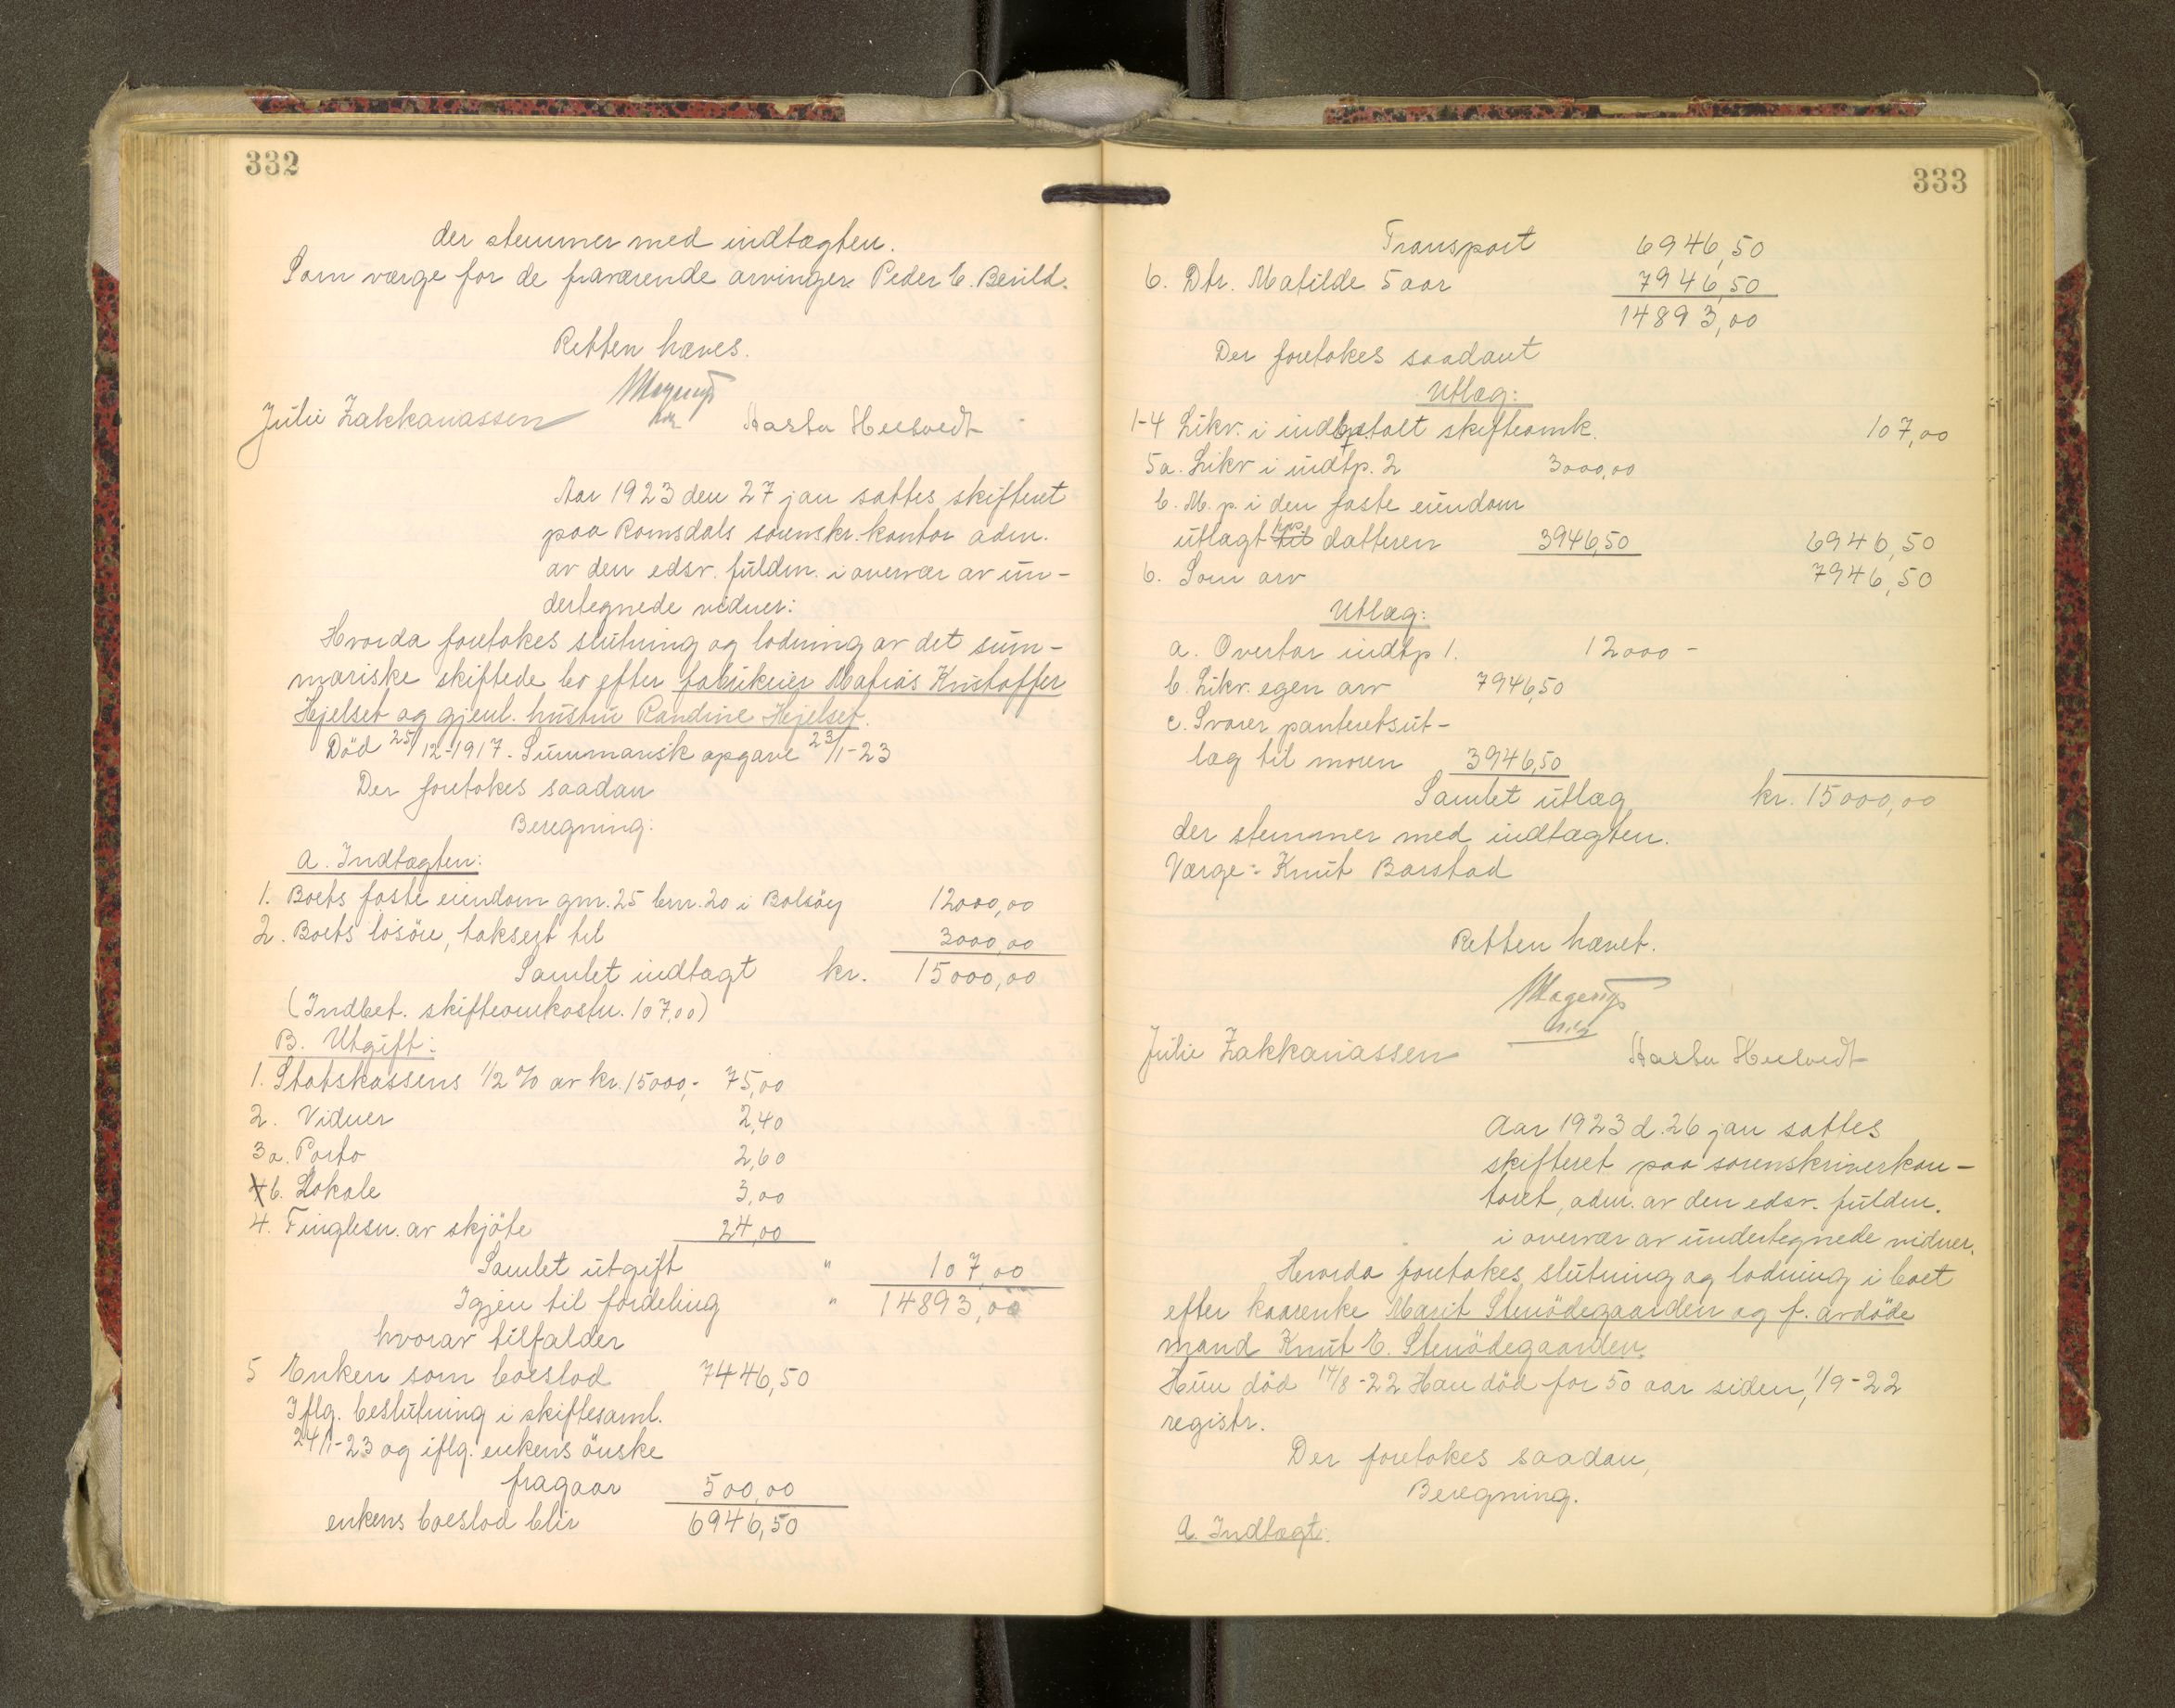 332
der stemmer med indtægten.
Som værge for de fraværende arvinger Peder C. Bevild.
Retten hæves.
Julie Zakkariassen
Aar 1923 den 27 jan sattes skifteret
paa Romsdals sorenskr. kontor adm.
av den edsv. fuldm. i overvær av un-
dertegnede vidner:
Hvorda foretokes slutning og lodning av det sum-
mariske skiftede bo efter fabrikeier Matias Kristoffer
Hjelset og gjenl. hustru Randine Hjelset.
Död 25/12-1917. Summarisk opgave 23/1-23
Der foretokes saadan
Beregning:
A. Indtægten:
1. Boets faste eiendom gnr. 25 bnr. 20 i Bolsöy 12000,00
2. Boets lösöre, taksert til 3000,00
Samlet indtægt kr. 15000,00
(Indbet. skifteomkostn. 107,00)
B. Utgift:
1. Statskassens 1/2 % av kr. 15000,- 75,00
2. Vidner 2,40
3a. Porto 2,60
b. Lokale 3,00
4. Tinglesn. av skjöte 24,00
Samlet utgift " 107,00
Igjen til fordeling " 14893,00
hvorav tilfalder
5 Enken som boeslod 7446,50
Iflg. beslutning i skiftesaml.
24/1-23 og iflg. enkens önske
fragaar 500,00
enkens boeslod blir 6946,50
333
Transport 6946,50
6. Dtr. Matilde 5 aar 7946,50
14893,00
Der foretokes saadant
Utlæg:
1-4 Likv. i indbetalt skifteomk. 107,00
5a. Likv i indtp. 2 3000,00
b. M. p. i den faste eiendom
utlagt hos til datteren 3946,50 6946,50
6. Som arv 7946,50
Utlæg:
a. Overtar indtp 1. 12000 -
b. Likv. egen arv 7946,50
c. Svarer panteretsut-
læg til moren 3946,50
Samlet utlæg kr. 15000,00
der stemmer med indtægten.
Værge: Knut Barstad
Retten hævet.
Julie Zakkariassen
Aar 1923 d. 26 jan sattes
skifteret paa sorenskriverkon-
toret, adm. av den edsv. fuldm.
i overvær av undertegnede vidner.
Hvorda foretokes slutning og lodning i boet
efter kaarenke Marit Stenödegaarden og f. avdöde
mand Knut E. Stenödegaarden.
Hun död 14/8-22 Han död for 50 aar siden, 1/9-22
registr.
Der foretokes saadan,
Beregning.
A. Indtægt: